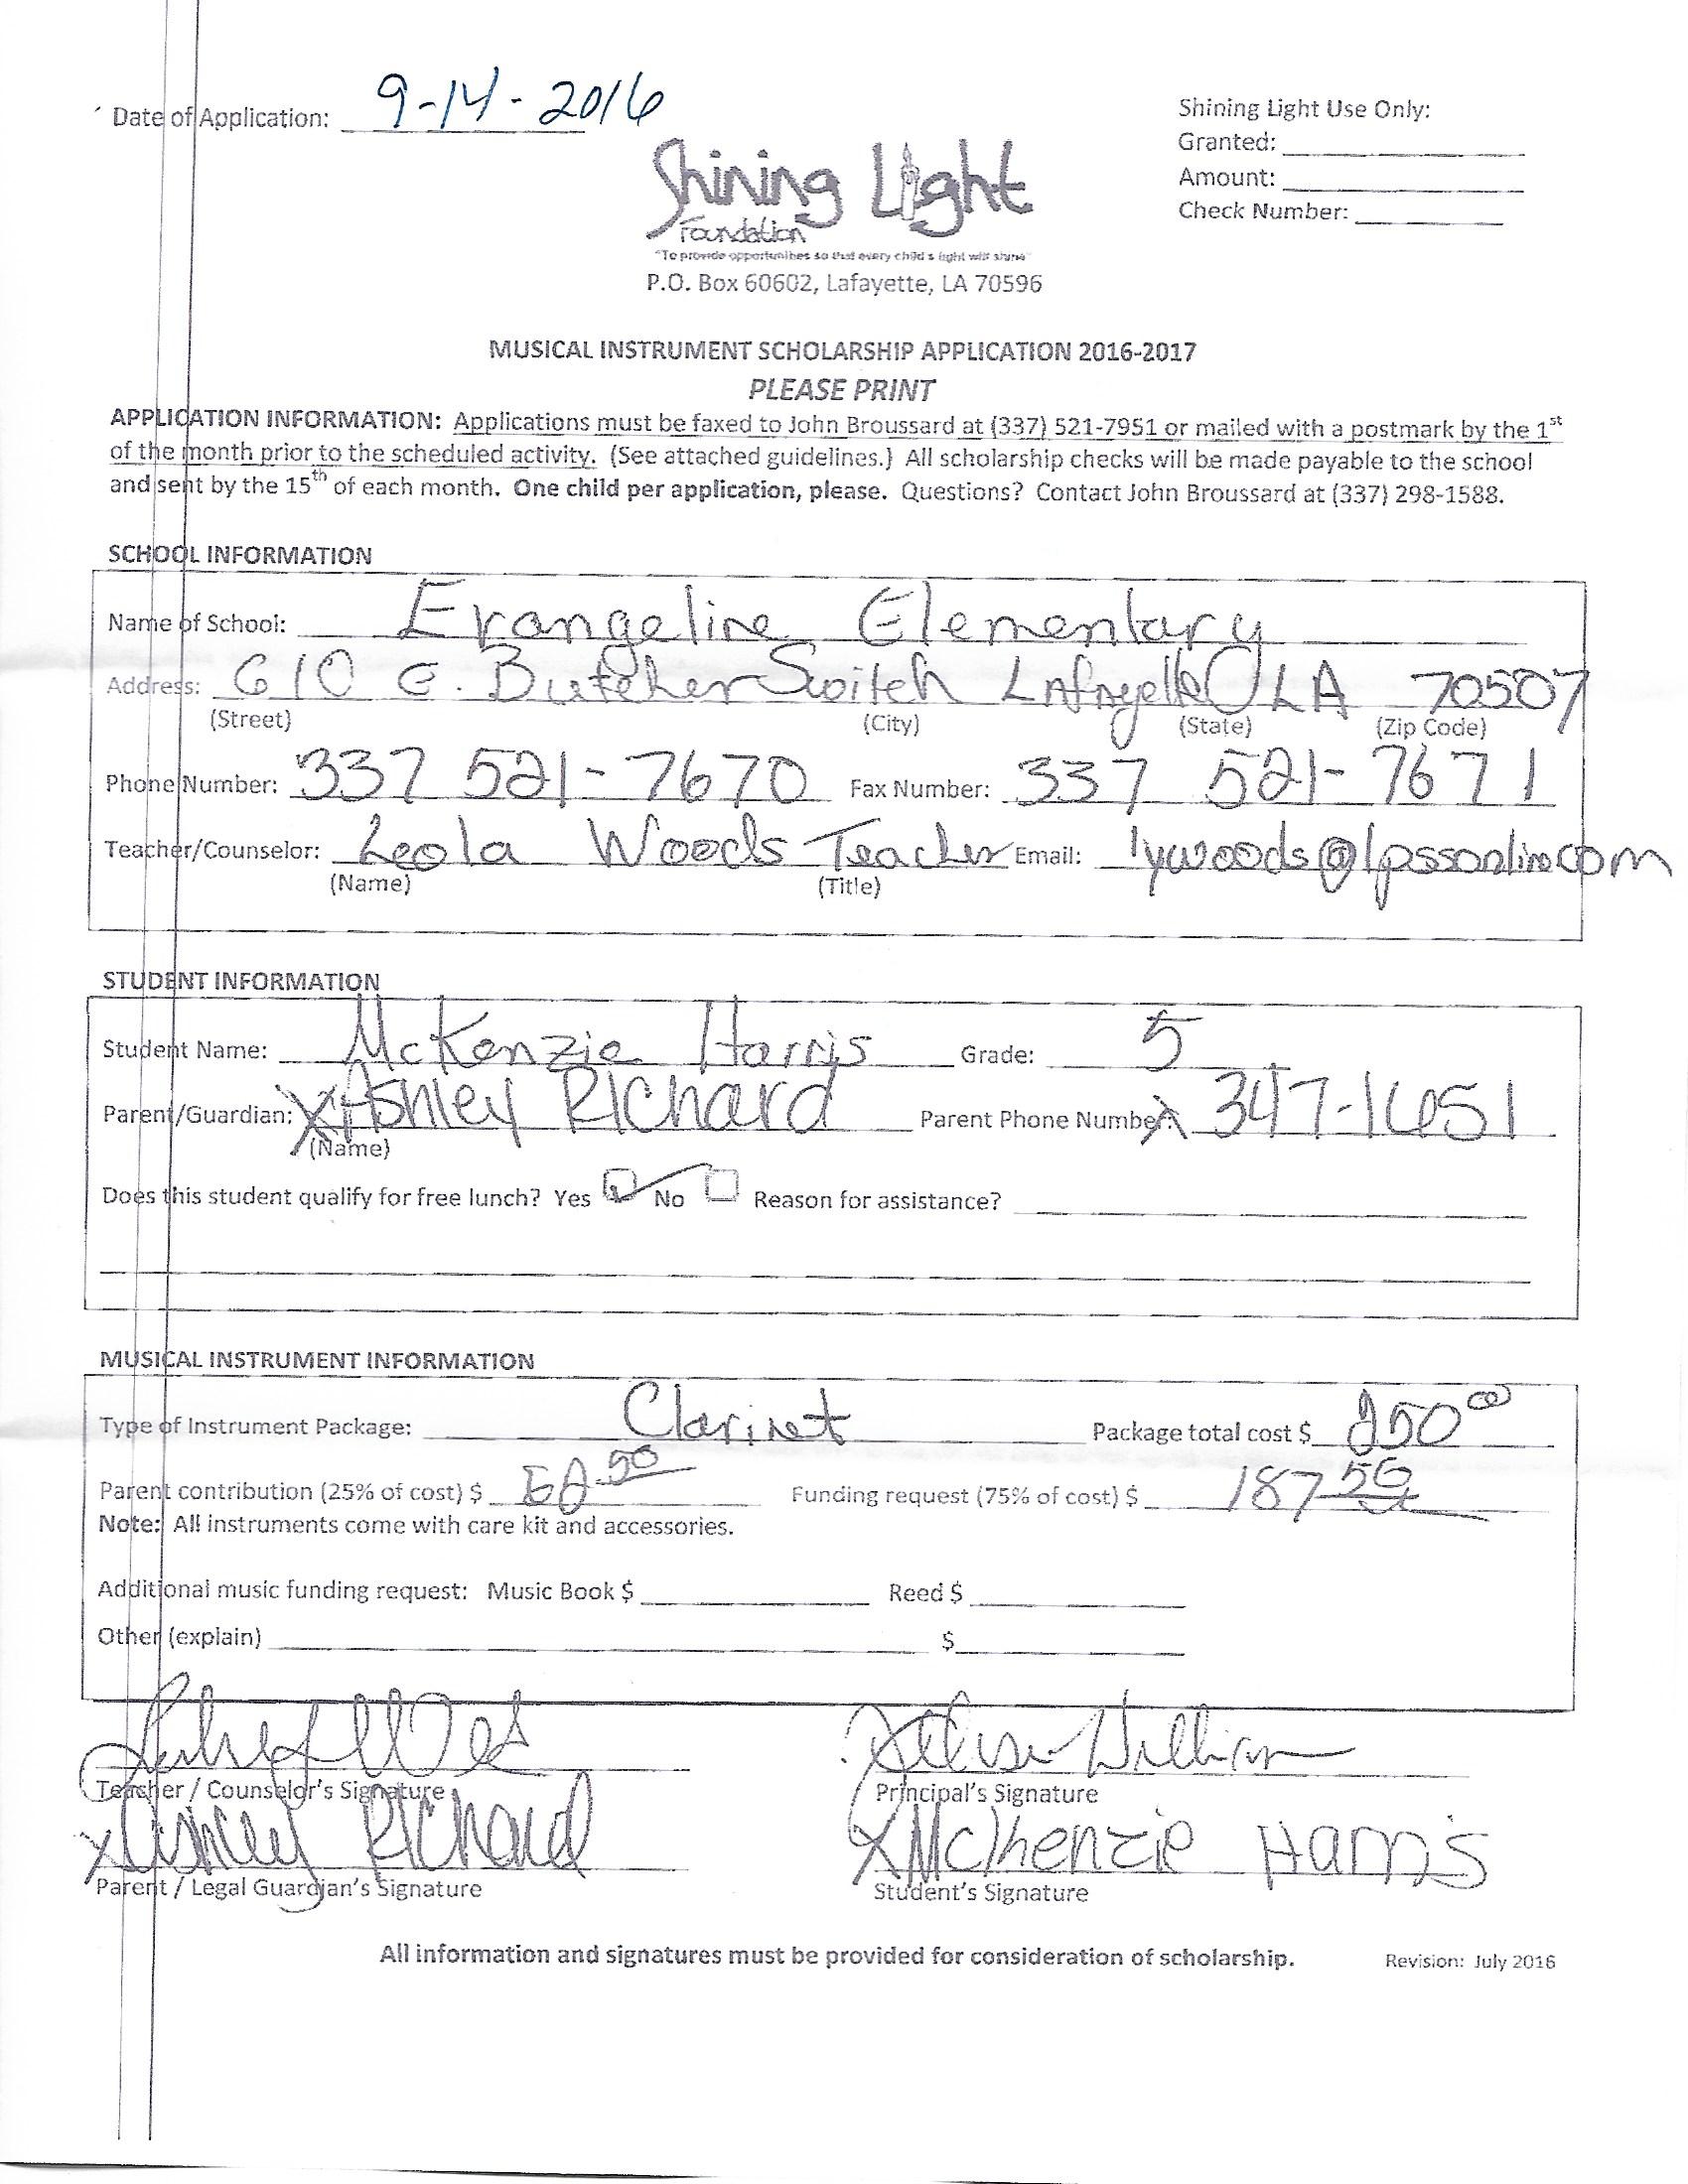 Date of Application: 9-14-2016
Shining Light Use Only:
Granted:
Amount:
Check Number:
Shining Light
Foundation
"To provide opportunities so that every child's light will shine"
P.O. Box 60602, Lafayette, LA 70596
MUSICAL INSTRUMENT SCHOLARSHIP APPLICATION 2016-2017
PLEASE PRINT
APPLICATION INFORMATION: Applications must be faxed to John Broussard at (337) 521-7951 or mailed with a postmark by the 1st
of the month prior to the scheduled activity. (See attached guidelines.) All scholarship checks will be made payable to the school
and sent by the 15th of each month. One child per application, please. Questions? Contact John Broussard at (337) 298-1588.
SCHOOL INFORMATION
Name of School: Evangeline Elementary
Address: 610 E. Butcher Switch Lafayette LA 70507
(Street) (City) (State) (Zip Code)
Phone Number: 337 521-7670 Fax Number: 337 521-7671
Teacher/Counselor: Leola Woods Teacher Email: lywoods@lpssonline.com
(Name) (Title)
STUDENT INFORMATION
Student Name: McKenzie Harris Grade: 5
Parent/Guardian: X Ashley Richard Parent Phone Number: X 347-1651
(Name)
Does this student qualify for free lunch? Yes No Reason for assistance?
MUSICAL INSTRUMENT INFORMATION
Type of Instrument Package: Clarinet Package total cost $ 250 00
Parent contribution (25% of cost) $ 62.50 Funding request (75% of cost) $ 187 50
Note: All instruments come with care kit and accessories.
Additional music funding request: Music Book $ Reed $
Other (explain) $
Teacher / Counselor's Signature Principal's Signature
X Ashley Richard X McKhenzie Harris
Parent / Legal Guardian's Signature Student's Signature
All information and signatures must be provided for consideration of scholarship. Revision: July 2016